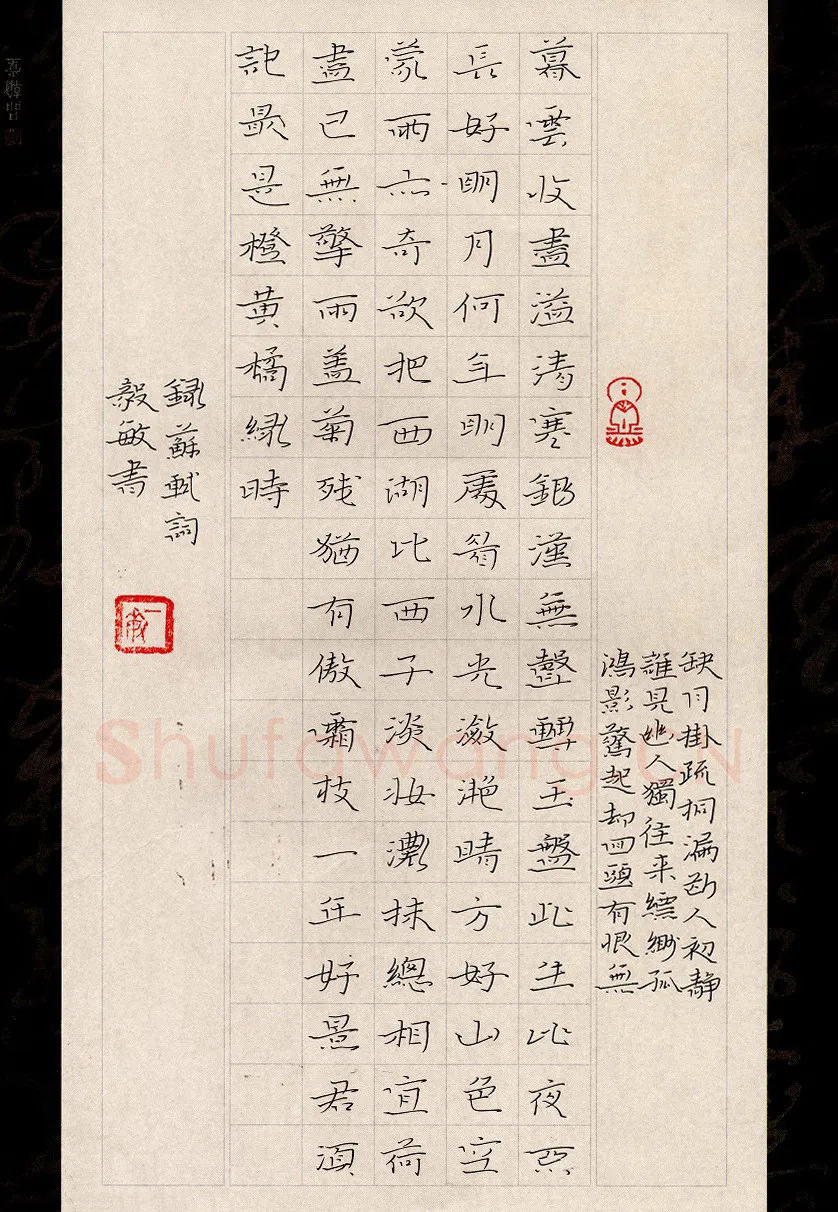 缺月掛疏桐漏断人初静
誰見幽人獨往来縹緲孤
鴻影驚起却回頭有恨無
暮雲收盡溢清寒銀漢無聲轉玉盤此生此夜不
長好明月何年明處看水光瀲灩晴方好山色空
蒙雨亦奇欲把西湖比西子淡妝濃抹總相宜荷
盡已無擎雨蓋菊残猶有傲霜枝一年好景君須
記最是橙黃橘綠時
録蘇軾詞
毅敏書
Shufawang.CN